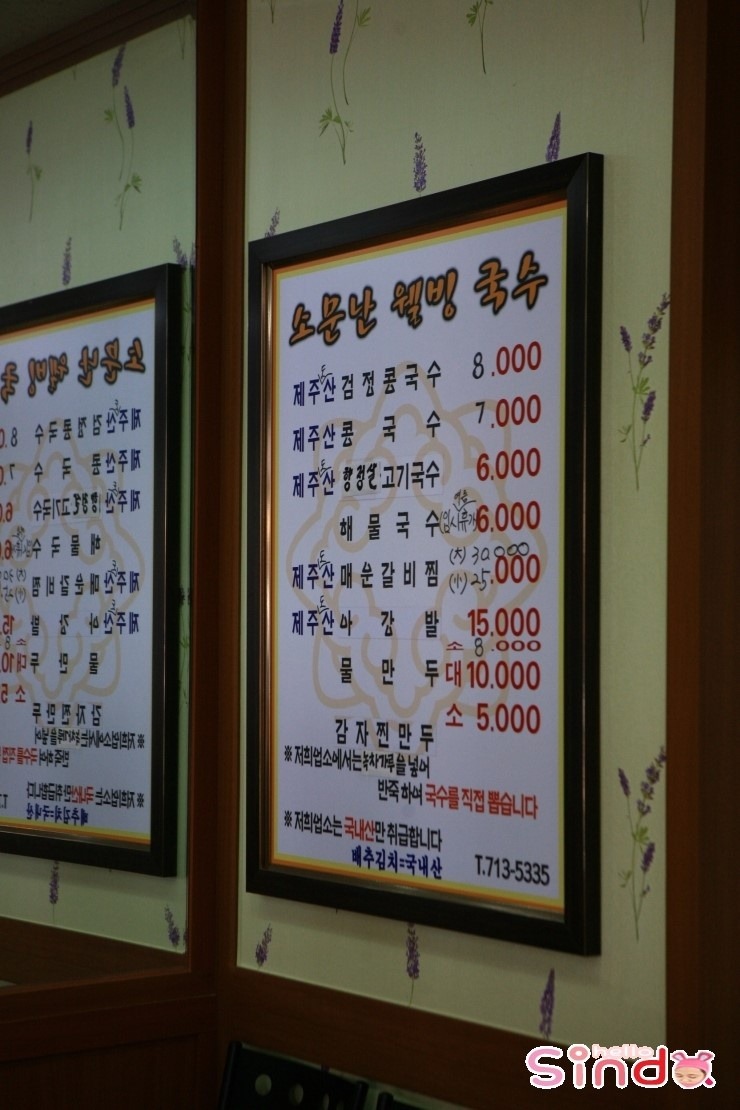 소문난 웰빙 국수
제주산 검정콩국수 8.000
제주산 콩국수 7.000
제주산 항정살 고기국수 6.000
해물국수 (입시휴가) 6.000
제주산 매운갈비찜 (大) 30.000
(小) 25.000
제주산 아강발 15.000
소 8.000
물만두 대 10.000
소 5.000
감자찐만두
※ 저희업소에서는 녹차가루을 넣어
반죽하여 국수를 직접 뽑습니다
※ 저희업소는 국내산만 취급합니다
배추김치=국내산 T.713-5335
hello
Sindo